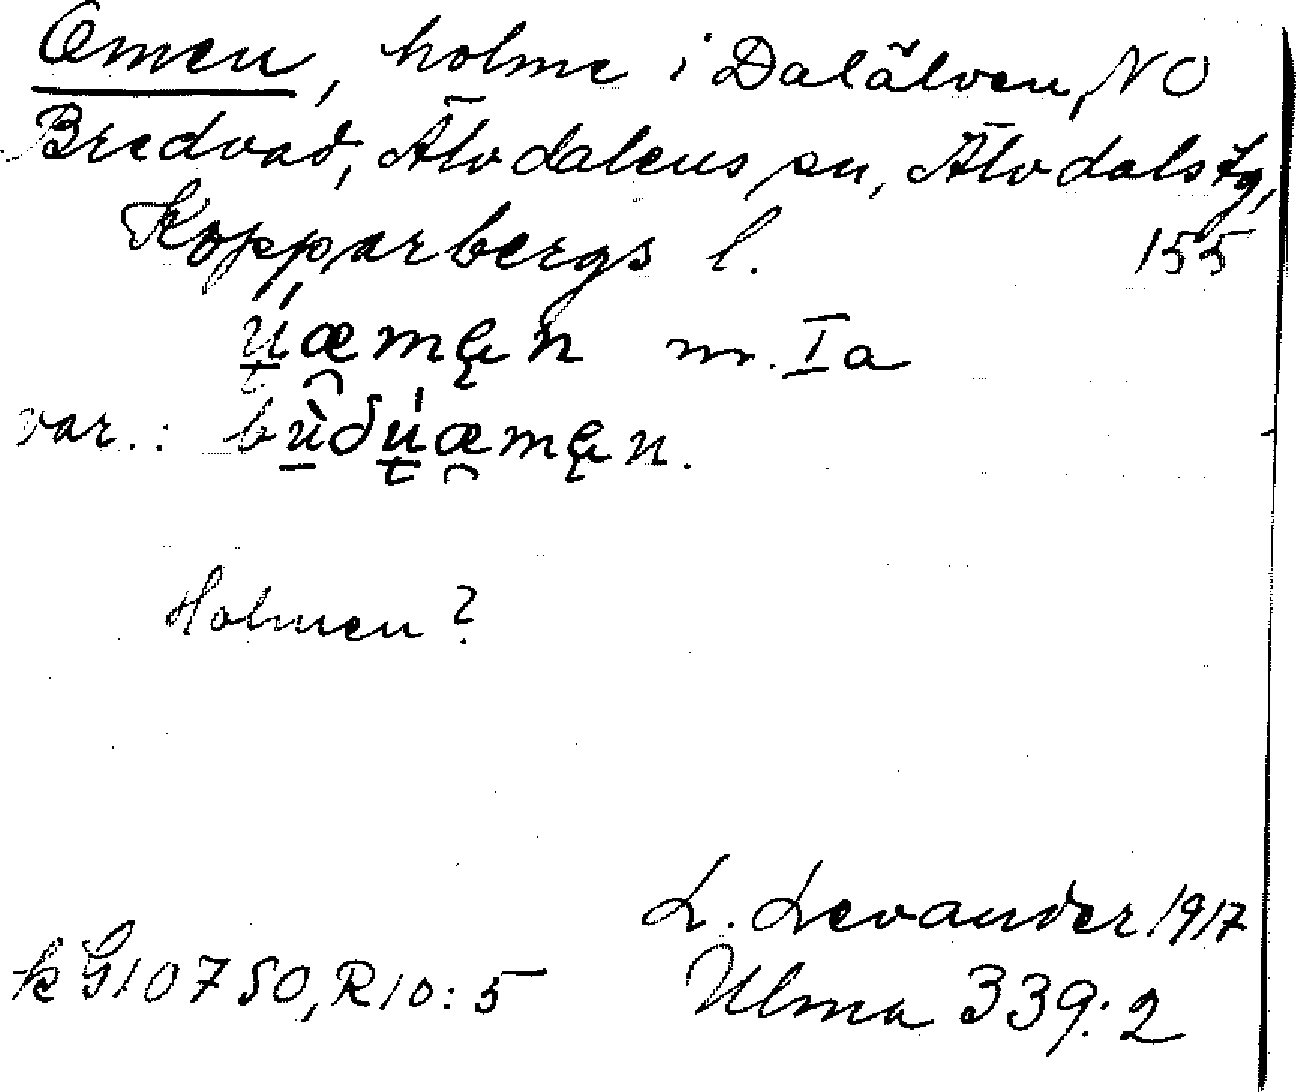 Omen, holme i Dalälven, NO
Bredvad, Älvdalens sn, Älvdals tg,
Kopparbergs l. 155
u̯œmęn m. Ia
var.: bùðu̯œmęn.
Holmen?
L. Levander 1917
k G10750, R10:5 Ulma 339:2